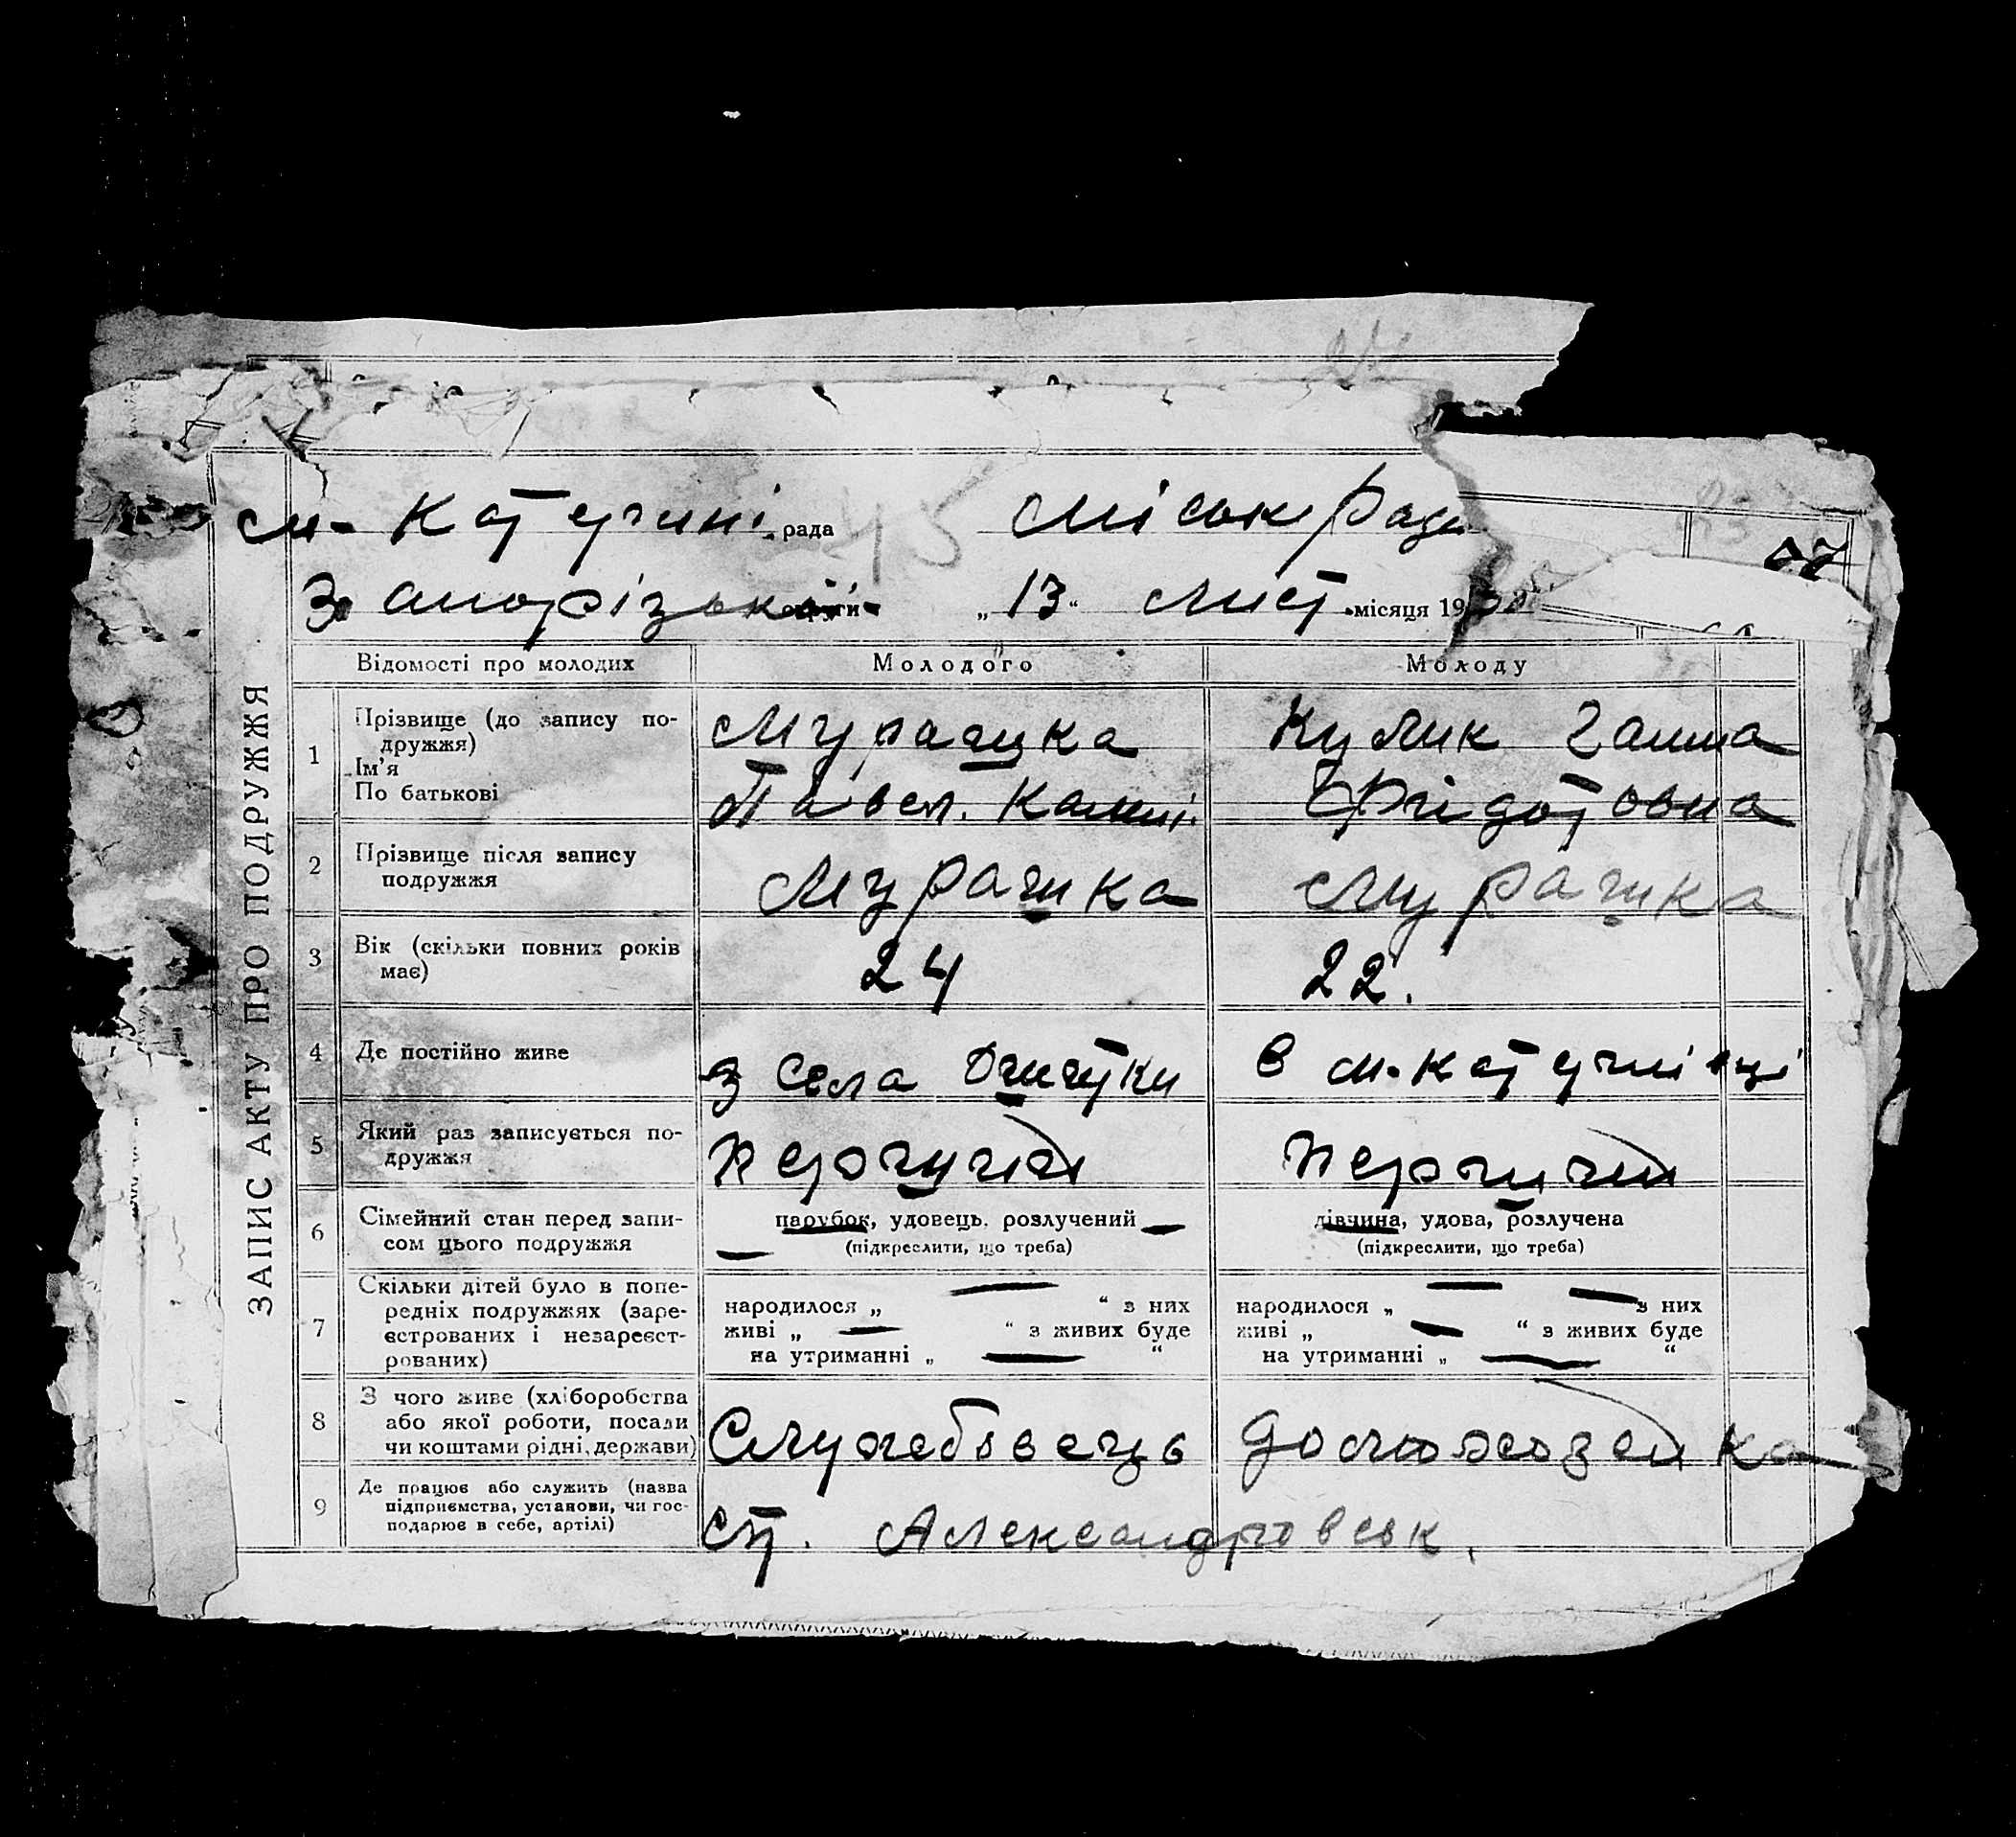 45
м. Катерині. рада Міськради
Запорізької округи „13“ Лист. місяця 193
07
ЗАПИС АКТУ ПРО ПОДРУЖЖЯ
Відомості про молодих Молодого Молоду
1 Прізвище (до запису подружжя) Мурашка Кулик Ганна
Ім'я
По батькові Павел.
2 Прізвище після запису Мурашка Мурашка
подружжя
3 Вік (скільки повних років 24 22.
має)
4 Де постійно живе з села в м.
5 Який раз записується по- перший перший
дружжя
6 Сімейний стан перед запи- парубок, удовець, розлучений дівчина, удова, розлучена
сом цього подружжя (підкреслити, що треба) (підкреслити, що треба)
7 Скільки дітей було в попе-
редніх подружжях (заре- народилося „ “ з них народилося „ з них
єстрованих і незареєст- живі „ “ з живих буде живі „ “ з живих буде
рованих) на утриманні „ “ на утриманні „ “
8 З чого живе (хліборобства
або якої роботи, посади Служебовець домохозейка
чи коштами рідні, держави)
9 Де працює або служить (назва
підприємства, установи, чи гос- ст. Александровськ.
подарює в себе, артілі)